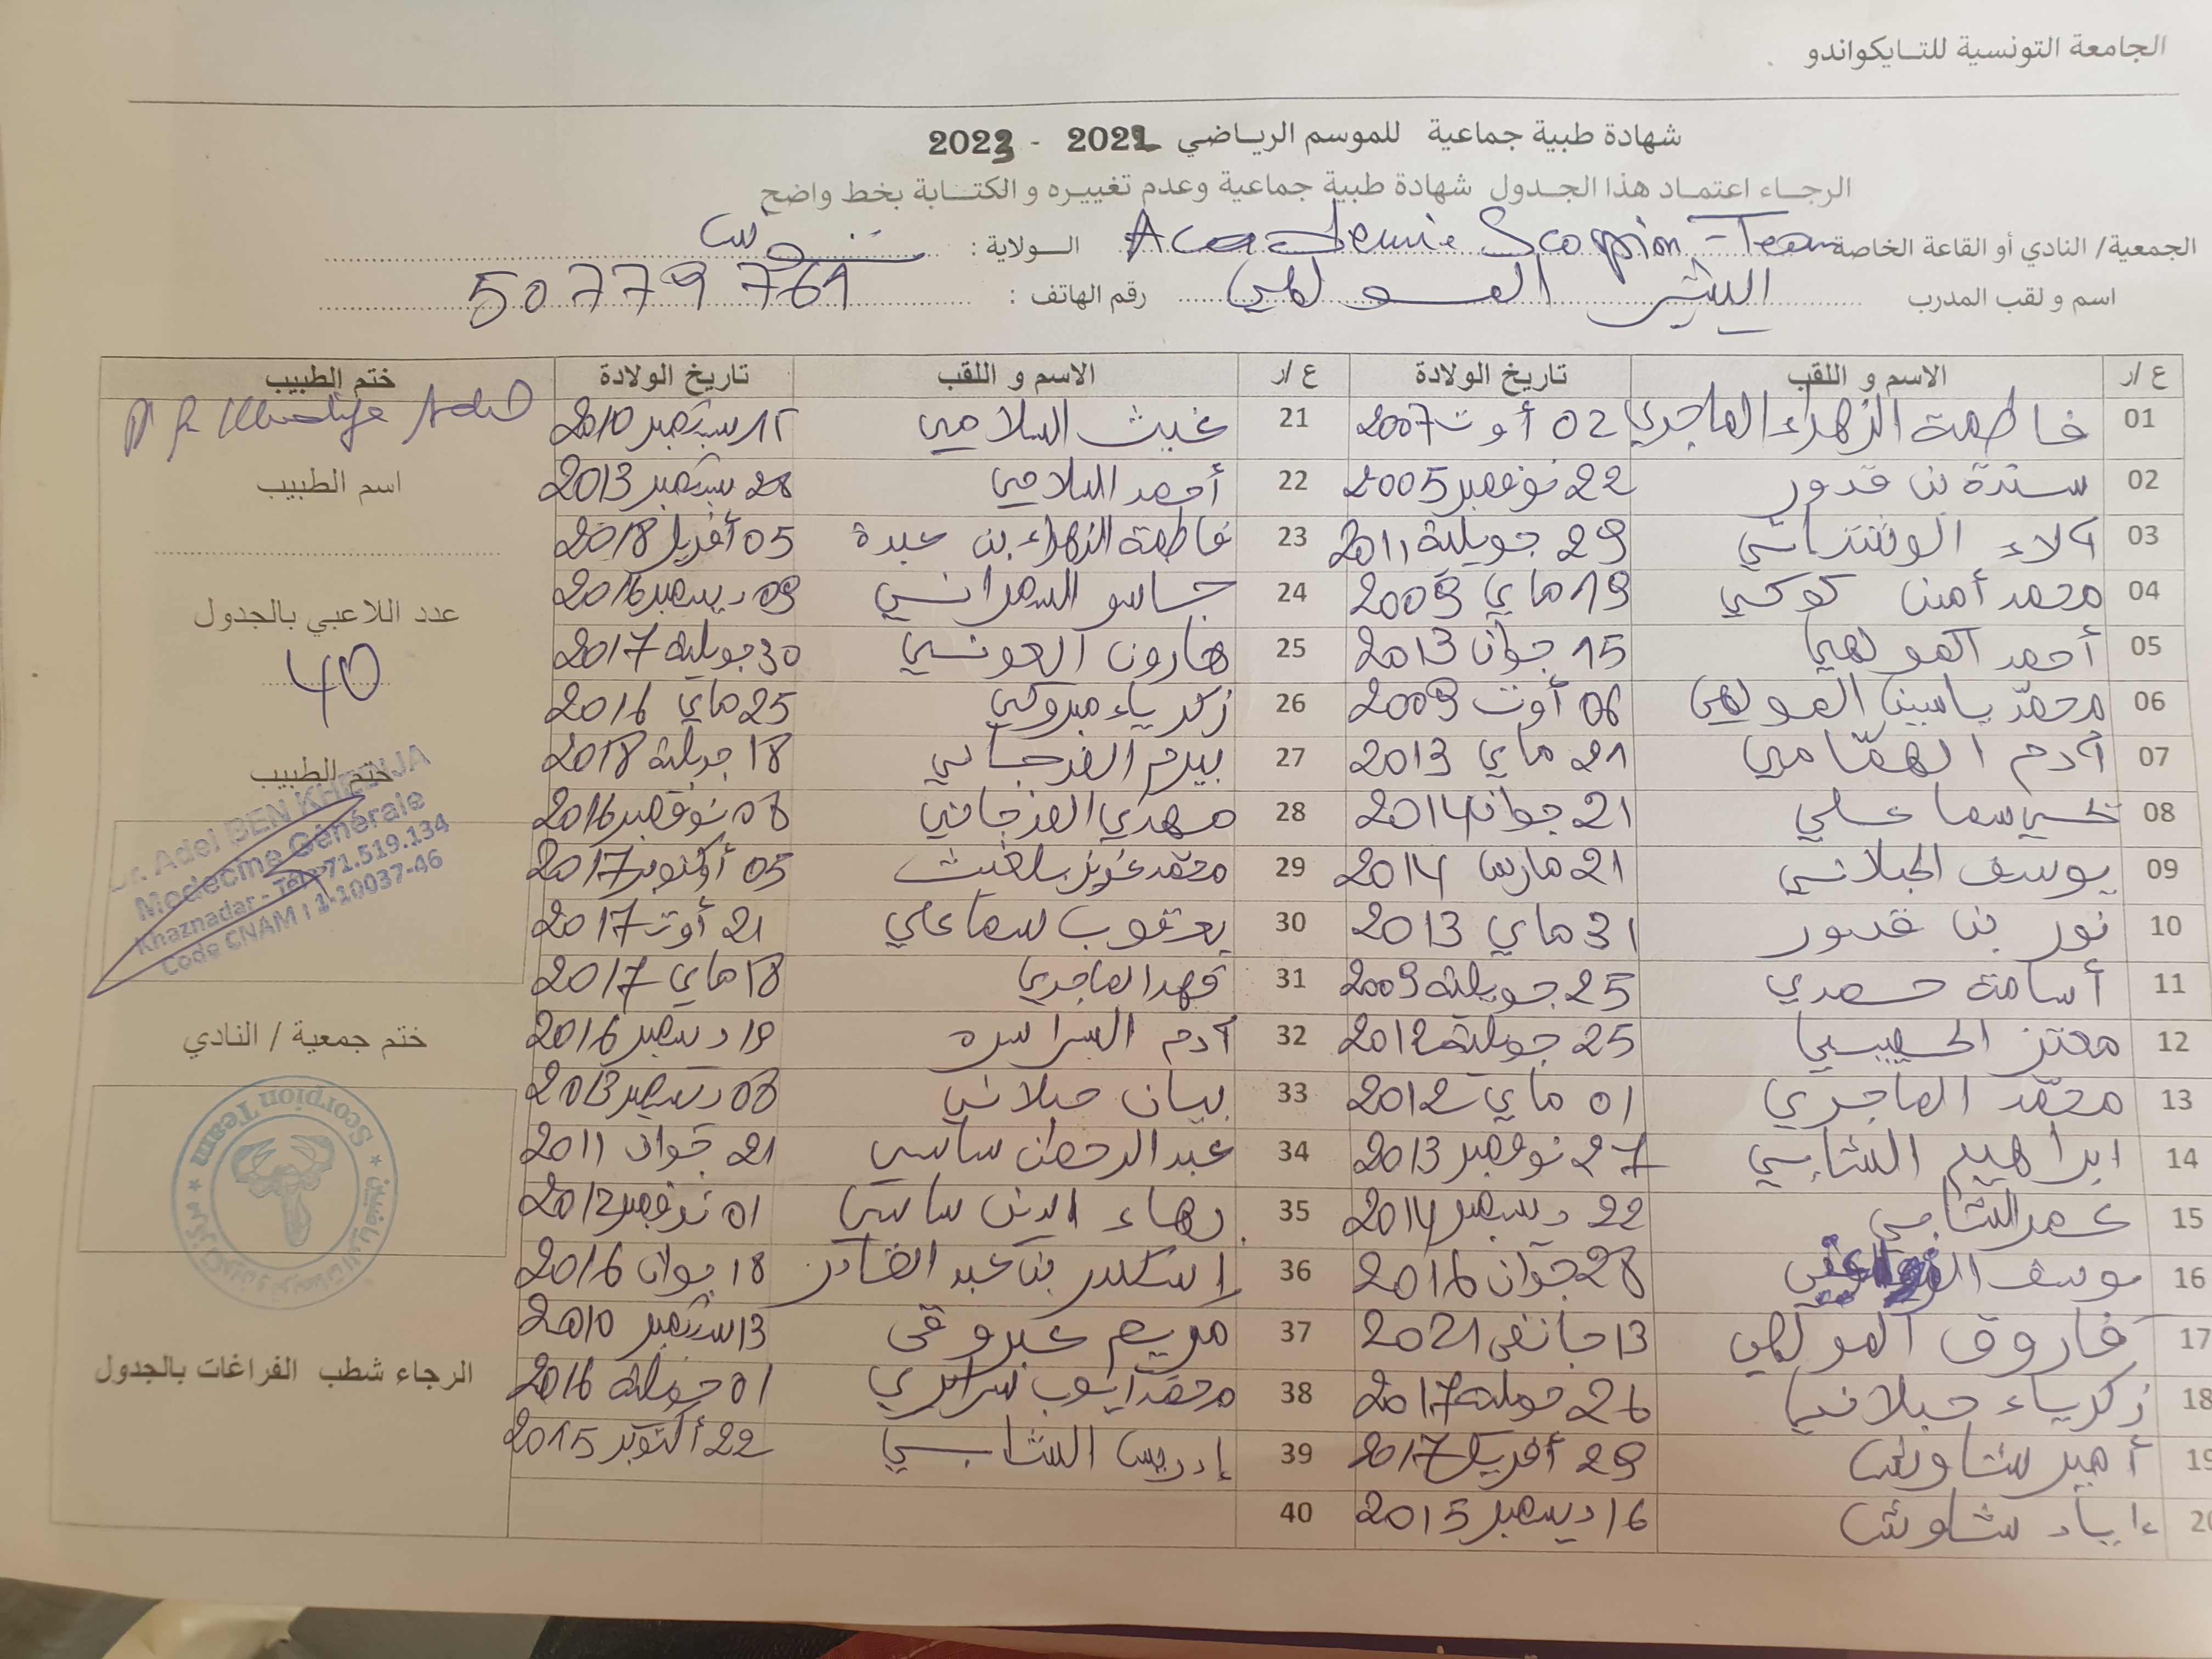 الجامعة التونسية للتـايكواندو
شهادة طبية جماعية للموسم الريـاضي 2022 - 2023
الرجـاء اعتمـاد هذا الجـدول شهادة طبية جماعية وعدم تغييره و الكتـابة بخط واضح
الجمعية/ النادي أو القاعة الخاصة Academie Scopion-Team الـولاية : تونس
اسم و لقب المدرب البشير المولهي رقم الهاتف : 50779761
ع /ر الاسم و اللقب تاريخ الولادة ع /ر الاسم و اللقب تاريخ الولادة ختم الطبيب
01 فاطمة الزهراء الماجري 02 أوت 2007 21 غيث السلامي 15 سبتمبر 2010
02 سندة بن قدور 22 نوفمبر 2005 22 أحمد السلامي 28 سبتمبر 2013
03 آلاء الونتتاتي 29 جويلية 2011 23 فاطمة الزهراء بن عبدة 05 أفريل 2018
04 محمد أمين كوكي 19 ماي 2009 24 جاسر السمراني 09 ديسمبر 2016
05 أحمد المولهي 15 جوان 2013 25 هارون العونسي 30 جويلية 2017
06 محمّد ياسين المولهي 06 أوت 2009 26 زكرياء مبروكي 25 ماي 2016
07 آدم الهمّامي 21 ماي 2013 27 بيرم الفرجاني 18 جويلية 2018
08 سماعلي 21 جوان 2014 28 مهدي الفرجاني 08 نوفمبر 2016
09 يوسف الجبلاني 21 مارس 2014 29 محمّد عزيز بلغيث 05 أكتوبر 2017
10 نور بن قدور 31 ماي 2013 30 يعقوب سماعلي 21 أوت 2017
11 أسامة حمدي 25 جويلية 2009 31 فهد الماجري 18 ماي 2017
12 معتز الحبيبي 25 جويلية 2012 32 آدم 19 ديسمبر 2016
13 محمّد الماجري 01 ماي 2012 33 بيان جبلاني 08 ديسمبر 2013
14 ابراهيم الشابي 27 نوفمبر 2013 34 عبد الرحمان ساسي 21 جوان 2011
15 عمر الشابي 22 ديسمبر 2014 35 بهاء الدين ساسي 01 نوفمبر 2012
16 يوسف 28 جوان 2016 36 اسكندر بن عبد القادر 18 جوان 2016
17 فاروق المولهي 13 جانفي 2021 37 مريم عبروقي 13 سبتمبر 2010
18 زكرياء جبلاني 26 جويلية 2017 38 محمّد أيوب سرايري 01 جويلية 2016
19 أمير شاوش 29 أفريل 2017 39 إدريس الشابي 22 أكتوبر 2015
20 إياد شاوش 16 ديسمبر 2015 40
اسم الطبيب
عدد اللاعبي بالجدول
40
ختم الطبيب
Dr. Adel BEN KHEDIJA
Médecine Générale
Khaznadar - Tél : 71.519.134
Code CNAM : 1-10037-46
ختم جمعية / النادي
Scorpion Team
الرجاء شطب الفراغات بالجدول